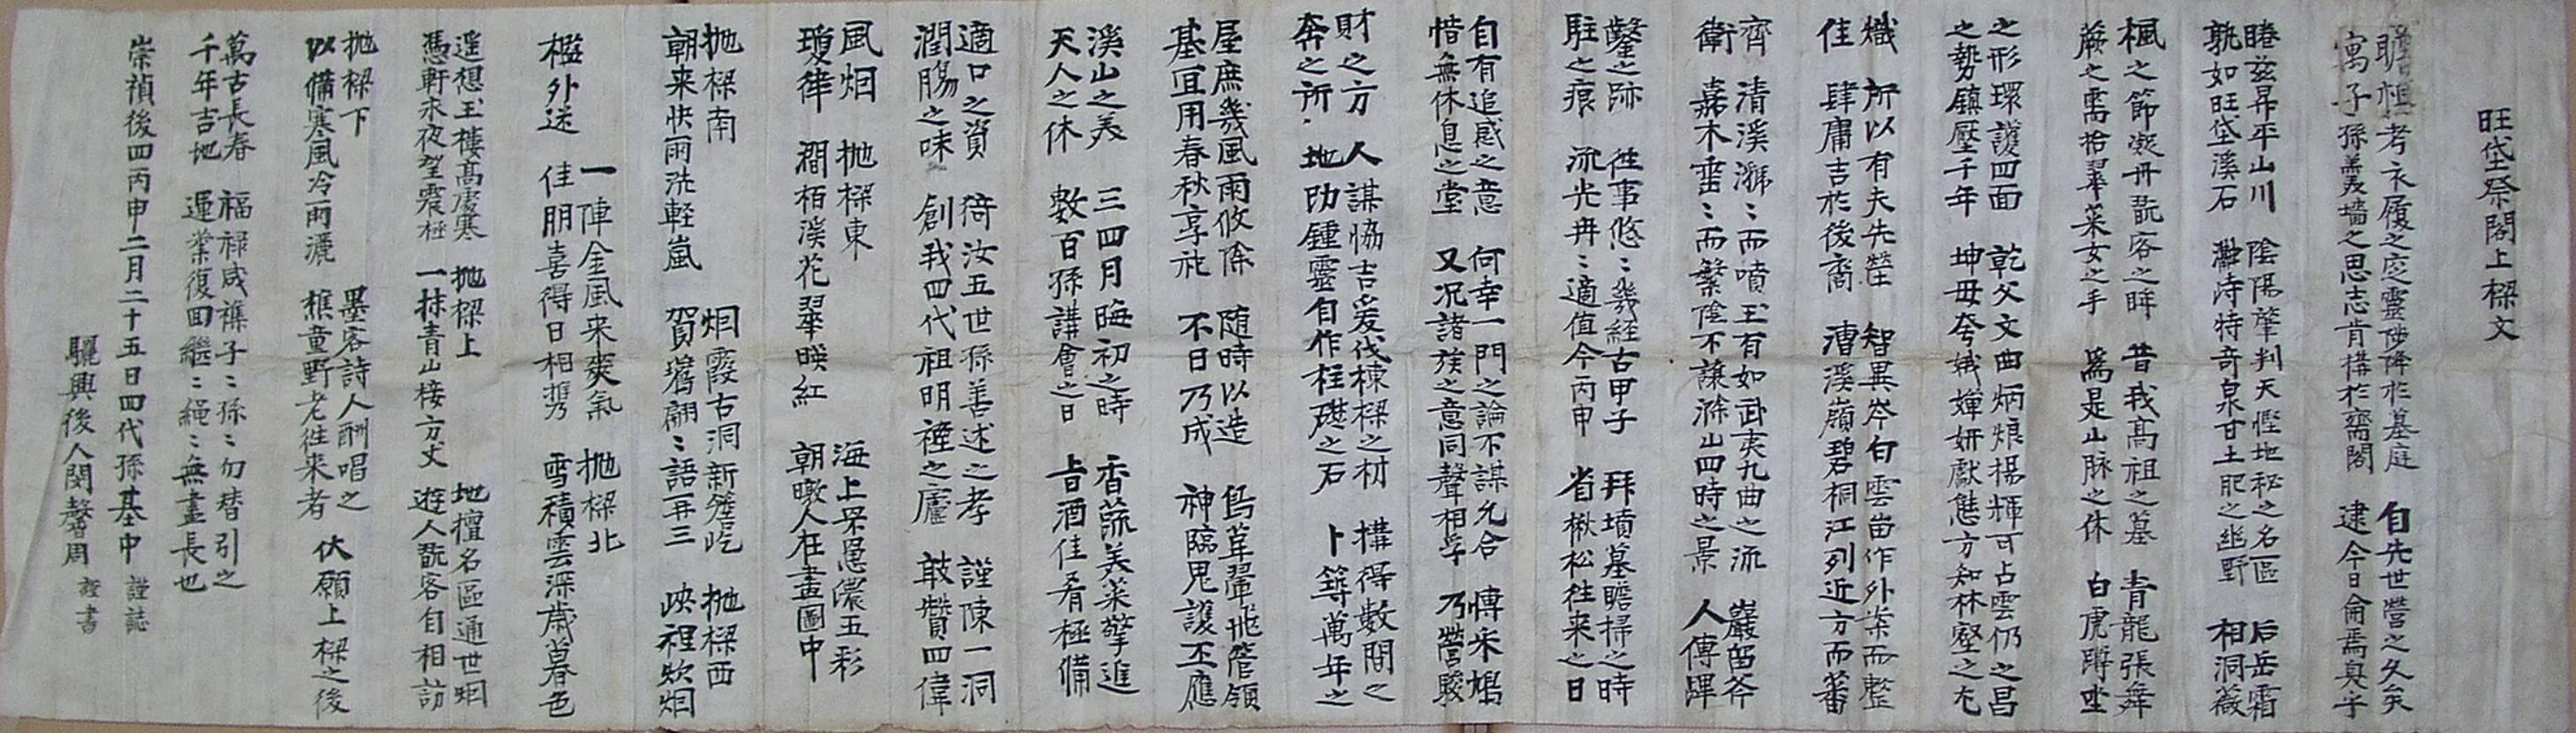 旺垈祭閣上樑文
瞻祖考衣履之庋靈陟降於墓庭 自先世營之久矣
寓子孫羹墻之思志肯構於齋閣 逮今日侖焉奐乎
睠玆昇平山川 陰陽肇判天慳地秘之名區 后岳霜
孰如旺垈溪石 特奇泉甘土肥之幽野 相洞薇
楓之節凝丹翫客之眸 昔我高祖之墓 青龍張舞
蕨之需拾翠菜女之手 爲是山脉之休 白虎蹲坐
之形環護四面 乾父文曲炳烺揚輝可占雲仍之昌
之勢鎮壓千年 坤母夸娥嬋妍獻態方知林壑之尤
熾 所以有夫先塋 智異岑白雲苗作外案而整
佳 肆庸吉於後裔 漕溪嶺碧桐江列近方而蕃
齊 清溪㶁〻而噴玉有如武夷九曲之流 巖留斧
衛 嘉木䆃〻而繁陰不讓滁山四時之景 人傳蹕
鑿之跡 往事悠〻幾經古甲子 拜墳墓瞻掃之時
駐之痕 流光冉〻適值今丙申 省楸松往來之日
自有追感之意 何幸一門之論不謀允合 博采鳩
惜無休息之堂 又况諸族之意同聲相孚 乃營駿
財之方 人謀恊吉爰伐棟樑之材 構得數間之
奔之所 地助鍾靈自作柱礎之石 卜築萬年之
屋庶幾風雨攸除 随時以造 鳥革翬飛管領
基宜用春秋享祀 不日乃成 神臨鬼護丕應
溪山之美 三四月晦初之時 香蔬美菜擎進
天人之休 數百孫講會之日 旨酒佳肴極備
適口之資 猗汝五世孫善述之孝 謹陳一洞
潤膓之味 創我四代祖明禋之廬 敢贊四偉
風烟 抛樑東 海上采恩濃五彩
瓊律 澗栢溪花翠暎紅 朝暾人在畫圖中
抛樑南 烟霞古洞新簷屹 抛樑西
朝来快雨洗軽嵐 賀舊翩〻語再三 峽裡炊烟
一陣金風来爽氣 抛樑北
檻外迷 佳朋喜得日相携 雪積雲深歲暮色
遥想玉樓高處寒 抛樑上 地擅名區通世烟
憑軒永夜望宸極 一抹青山接方丈 遊人翫客自相訪
抛樑下 墨客詩人酬唱之
以備寒風冷雨灑 樵童野老徃来者 伏願上樑之後
萬古長春 福禄咸襍子〻孫〻勿替引之
千年吉地 運業復回繼〻繩〻無盡長也
崇禎後四丙申二月二十五日四代孫基中 謹誌
驪興後人閔馨周 謹書